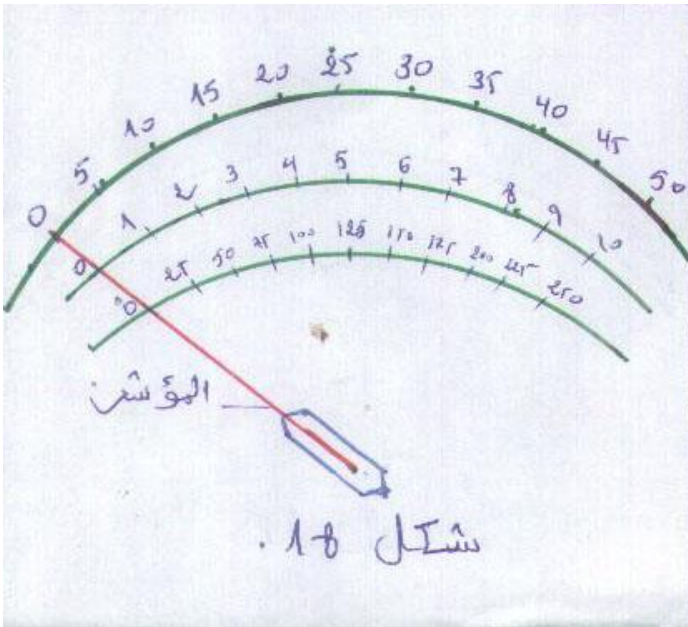 0 5 10 15 20 25 30 35 40 45 50
0 1 2 3 4 5 6 7 8 9 10
0 25 50 75 100 125 150 175 200 225 250
المؤشر
شكل 18.